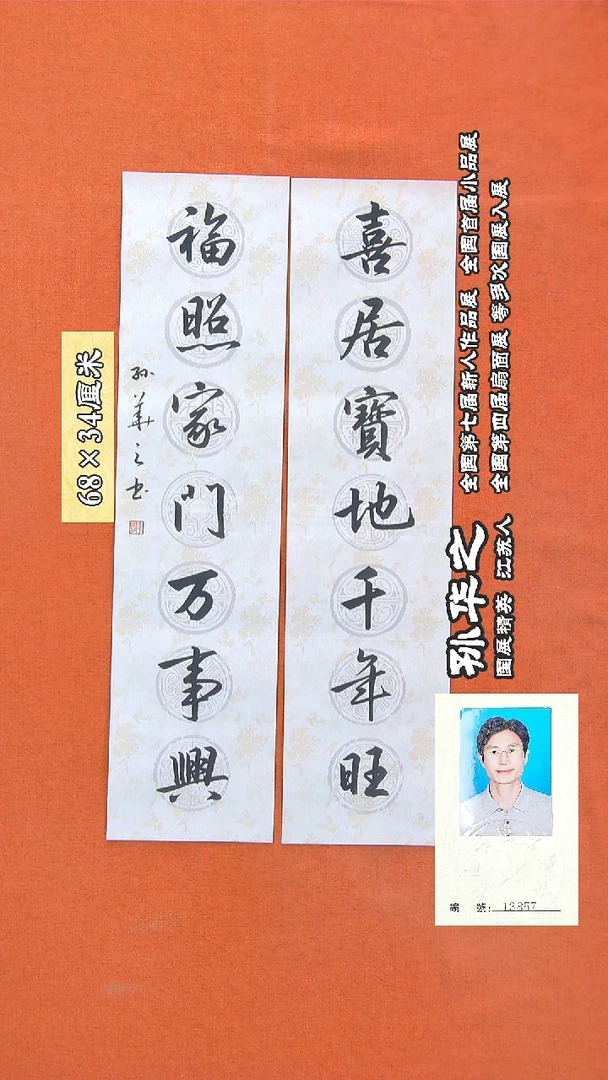 喜居寶地千年旺
福照家门万事興
孙華之书
68×34厘米
孙华之
国展精英 江苏人
全国第七届新人作品展 全国首届小品展
全国第四届扇面展 等多次国展入展
編 號: 13857